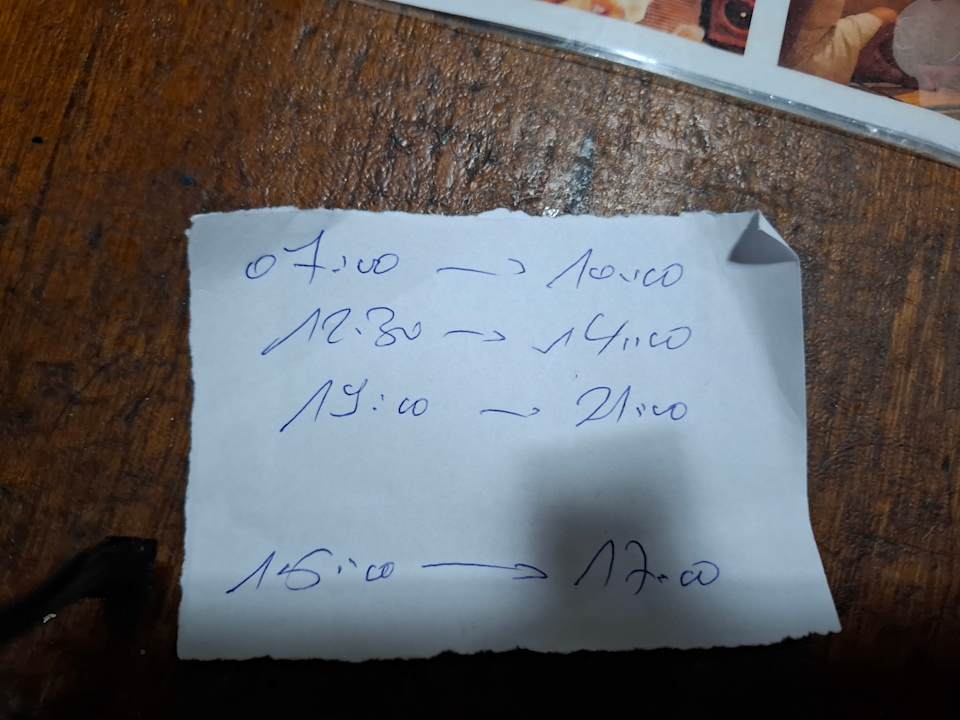 07:00 → 10:00
12:30 → 14:00
19:00 → 21:00
15:00 → 17:00